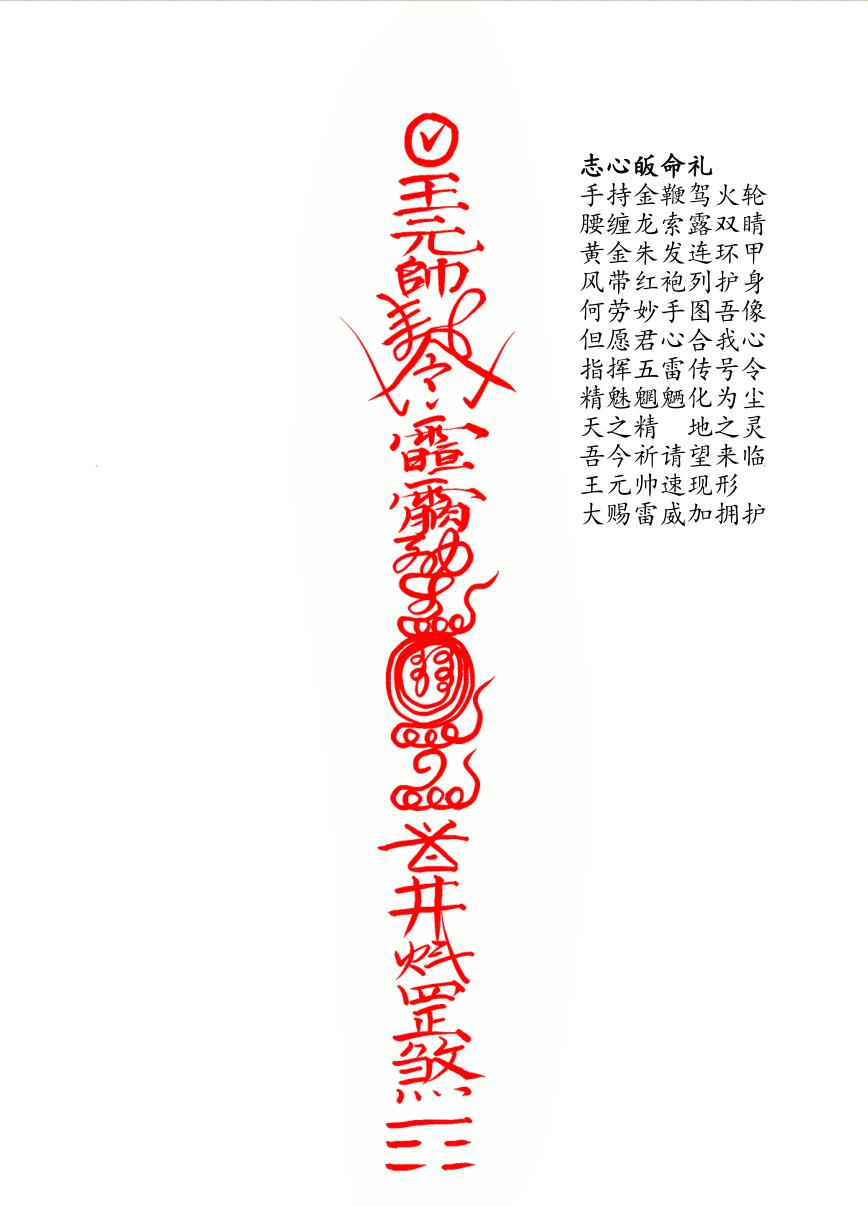 王
元
帥
令
井
罡
煞
志心皈命礼
手持金鞭驾火轮
腰缠龙索露双睛
黄金朱发连环甲
风带红袍列护身
何劳妙手图吾像
但愿君心合我心
指挥五雷传号令
精魅魍魉化为尘
天之精　地之灵
吾今祈请望来临
王元帅速现形
大赐雷威加拥护